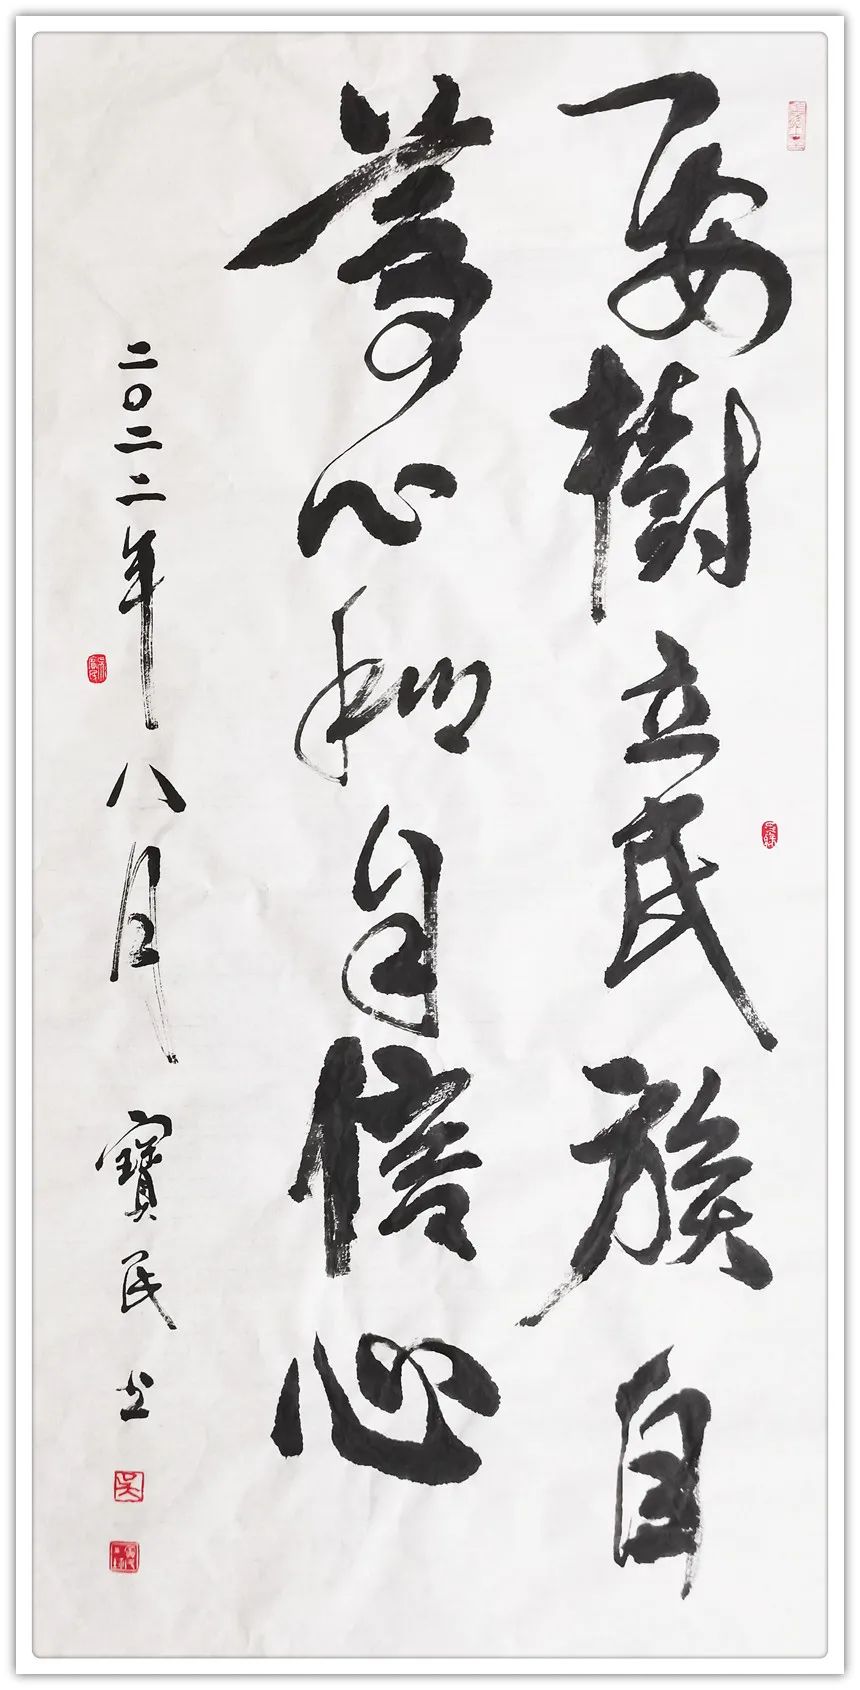 要樹立民族自
尊心和自信心
二〇二二年八月寶民书
吴